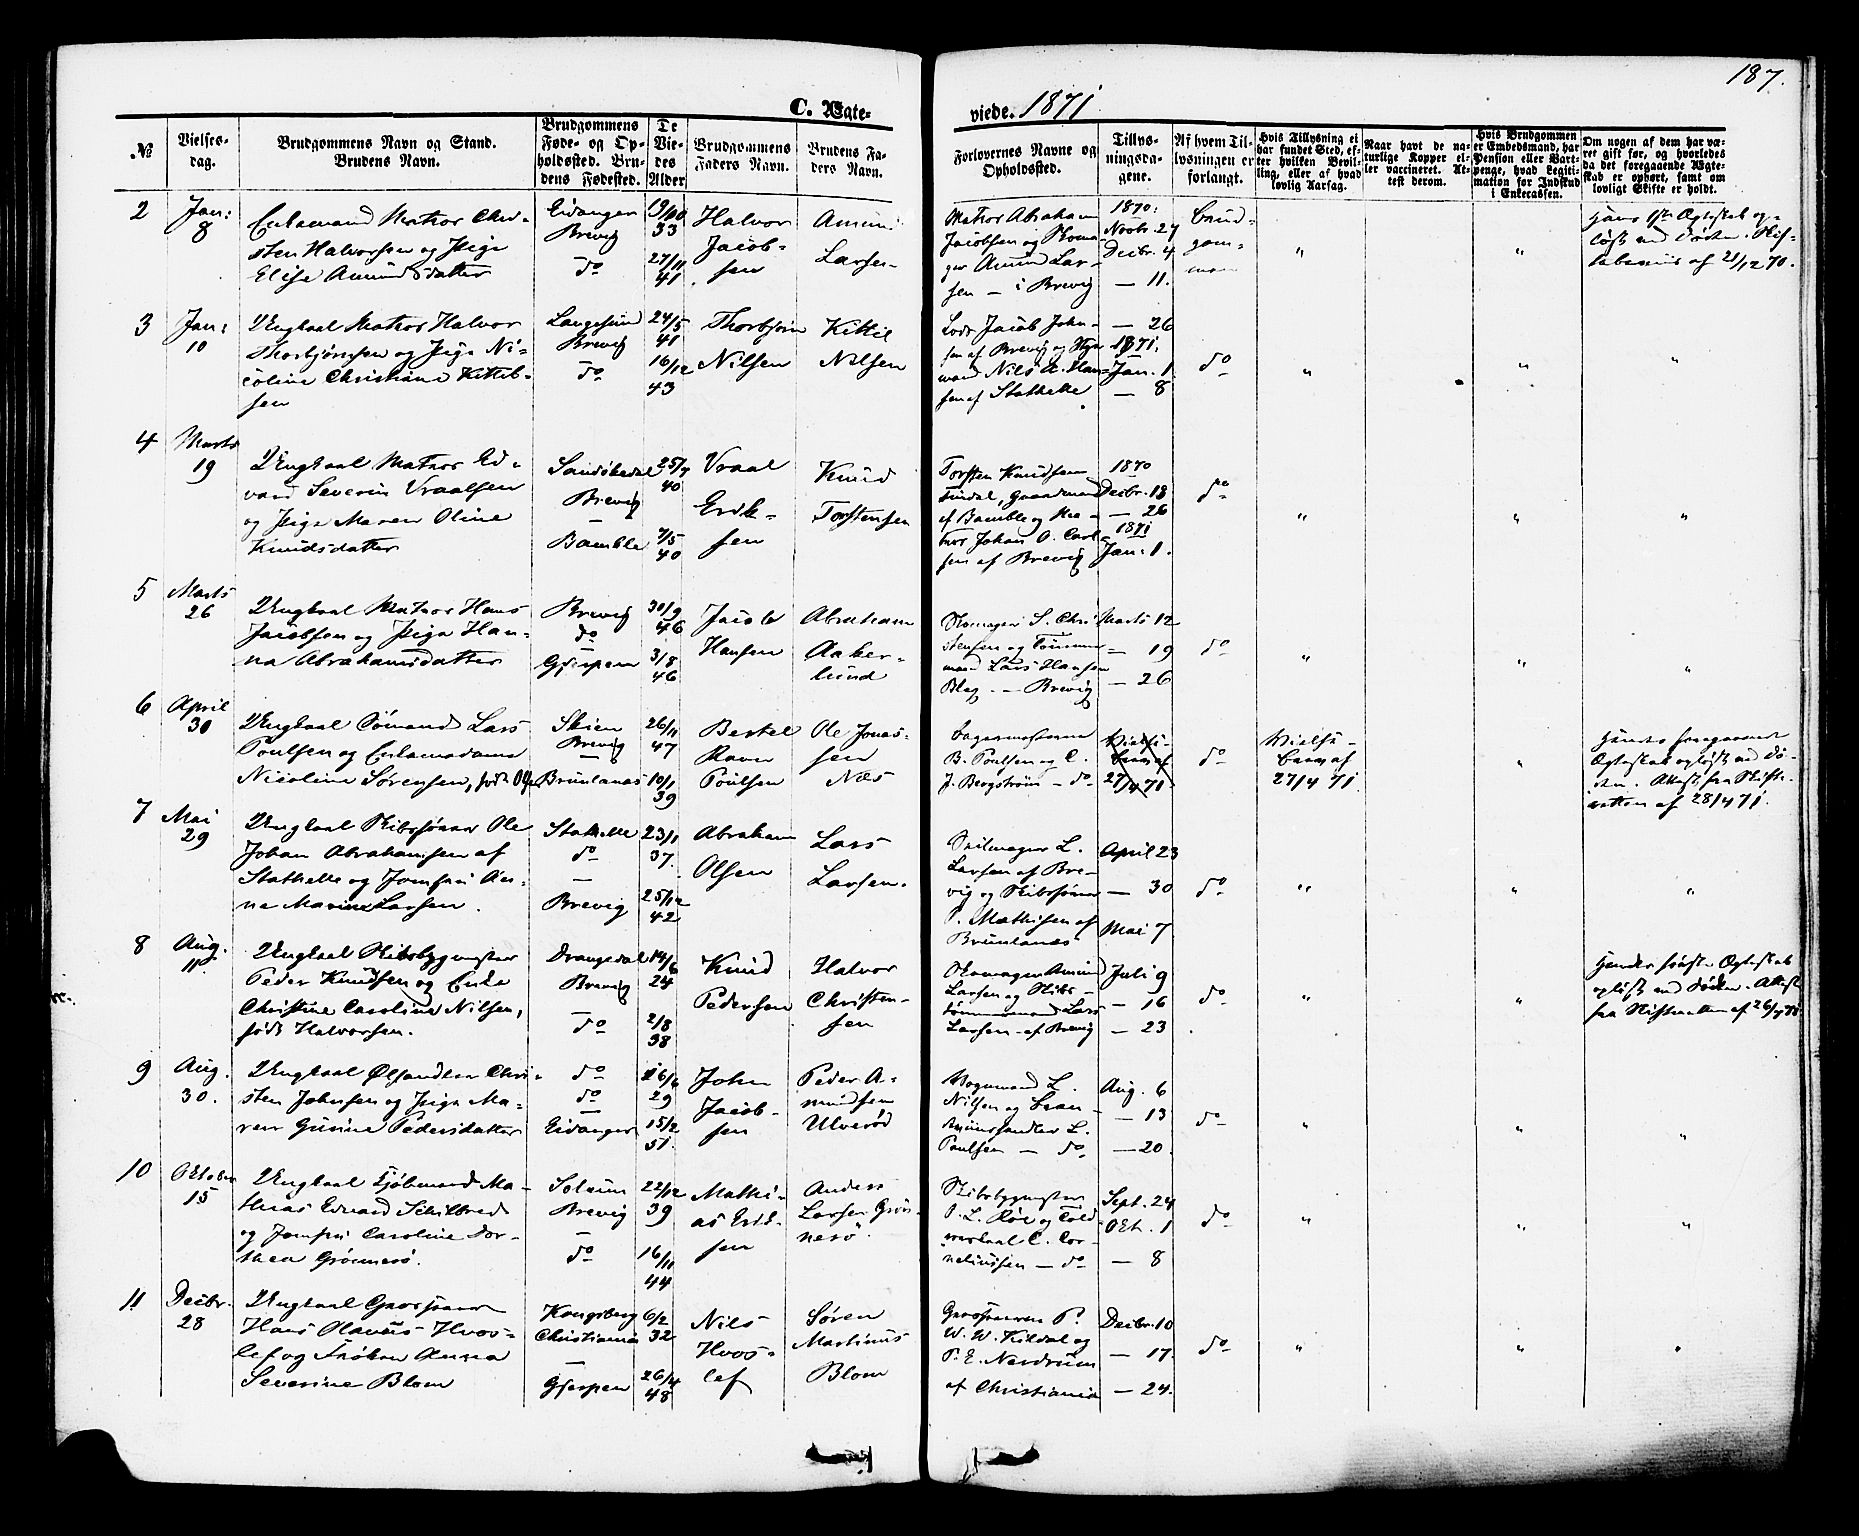 187.
C. Ægte-
viede. 1871
№
Vielses-
dag.
Brudgommens Navn og Stand.
Brudens Navn.
Brudgommens
Føde- og Op-
holdssted. Bru-
dens Fødested.
De
Vie-
des
Alder
Brudgommens
Faders Navn.
Brudens Fa-
ders Navn.
Forlovernes Navne og
Opholdssted.
Tillys-
ningsda-
gene.
Af hvem Til-
lysningen er
forlangt.
Hvis Tillysning ei
har fundet Sted, ef-
ter hvilken Bevil-
ling, eller af hvad
lovlig Aarsag.
Naar havt de na-
turlige Kopper el-
ler vaccineret. At-
test derom.
Hvis Brudgommen
er Embedsmand, har
Pension eller Vart-
penge, hvad Legiti-
mation for Indskud
i Enkecassen.
Om nogen af dem har væ-
ret gift før, og hvorledes
da det foregaaende Ægte-
skab er ophørt, samt om
lovligt Skifte er holdt.
2
Jan:
8
Enkemand Matros Chri-
sten Halvorsen og Pige
Elise Amundsdatter
Eidanger
Brevig
do
19/10
33
27/11
41
Halvor
Jacob-
sen
Amun
Larsen
Matros Abraham
Jacobsen og Skoma-
ger Amund Lar-
sen — i Brevig
1870:
Novbr. 27
Decbr. 4
— 11.
Brud-
gom-
men
"
Hans 1ste Ægteskab op-
løst ved Døden. Skif-
tebevis af 21/12 70.
3
Jan:
10
Ungkarl Matros Halvor
Thorbjørnsen og Pige Ni-
coline Christiane Kittils-
sen
Langesund
Brevig
do
24/5
41
16/12
43
Thorbjørn
Nilsen
Kittil
Nilsen
Lods Jacob John-
sen af Brevig og Styr-
mand Nils H. Han-
sen af Stathelle
— 26
1871.
Jan. 1.
— 8
do
"
"
"
4
Marts
19
Ungkarl Matros Ed-
vard Severin Vraalsen
og Pige Maren Oline
Knudsdatter
Sandøkedal
Brevig
—
Bamble
25/7
40
7/5
40
Vraal
Erik-
sen
Knud
Torstensen
Torsten Knudsen
Findal, Gaardmand
af Bamble og Ma-
tros Johan O. Carl-
sen af Brevig
1870
Decbr. 18
— 26
1871
Jan: 1.
do
"
"
"
5
Marts
26
Ungkarl Matros Hans
Jacobsen og Pige Han-
na Abrahamsdatter
Brevig
do
Gjerpen
30/9
46
3/8
46
Jacob
Hansen
Abraham
Aaker-
lund
Skomager S. Chri-
stensen og Tømmer-
mand Lars Hansen
— Brevig
Marts 12
— 19
— 26
do
"
"
"
6
April
30
Ungkarl Sømand Lars
Poulsen og Enkemadame
Nicoline Sørensen, født Olsen
Skien
Brevig
—
Brunlanæs
26/11
47
10/1
39
Bertel
Ravn
Poulsen
Ole Jonas-
sen
Næs
B. Poulsen og C.
J. Bergstrøm — do
Vielses-
brev af
27/4 71
do
Vielses-
brev af
27/4 71
"
Hendes foregaaende
Ægteskab opløst ved Dø-
den. Attest fra Skifte-
retten af 28/4 71.
7
Mai
29
Ungkarl Skibsfører Ole
Johan Abrahamsen af
Stathelle og Jomfru An-
ne Marine Larsen.
Stathelle
do
—
Brevig
23/1
37.
25/12
42
Abraham
Olsen
Lars
Larsen.
Seilmager L.
Larsen af Bre-
vig og Skibsfører
P. Mathisen af
Brunlanæs
April 23
— 30
Mai 7
do
"
"
"
8
Aug.
11.
Ungkarl Skibsbygmester
Peder Knudsen og Enke
Christine Caroline Nilsen,
født Halvorsen.
Drangedal
Brevig
—
do
14/6
24
2/8
38
Knud
Pedersen
Halvor
Christen-
sen
Skomager Amund
Larsen og Skibs-
tømmermand Lars
Larsen af Brevig
Juli 9
— 16
— 23
do
"
"
Hendes første Ægteskab
opløst ved Døden. Attest
fra Skifteretten af 26/
9
Aug.
30.
Ungkarl Ølhandler Chri-
sten Johnsen og Pige Ma-
ren Gurine Pedersdatter
do
do
—
Eidanger
16/6
29
15/2
51.
John
Jacob-
sen
Peder A-
mundsen
Ulverød
Vognmand L.
Nilsen og Bræn-
devinshandler L.
Paulsen — do,
Aug. 6
— 13
—20.
do
"
"
"
10
Oktober
15
Ungkarl Kjøbmand Ma-
thias Edvard Schilbred
og Jomfru Caroline Dor-
thea Grønnerø.
Solum
Brevig
—
do
22/12
39
16/11
44
Mathi-
as Erik-
sen
Anders
Larsen Grøn-
nerø.
Skibsbygmester
P. L. Røe og Told-
C. Cor-
neliussen — do
Sept. 24
Okt. 1
— 8
do
"
"
"
11
Decbr.
28
Ungkarl Grosserer
Hans Olavus Hvos-
lef og Frøken Anna
Severine Blom
Kongsberg
Christiania
—
Gjerpen
6/2
32
26/4
48
Nils
Hvos-
lef
Søren
Martinus
Blom
Grossererne P.
W. W. Kildal og
P. E. Nerdrum
af Christiania
Decbr. 10
— 17.
— 24.
do
"
"
"